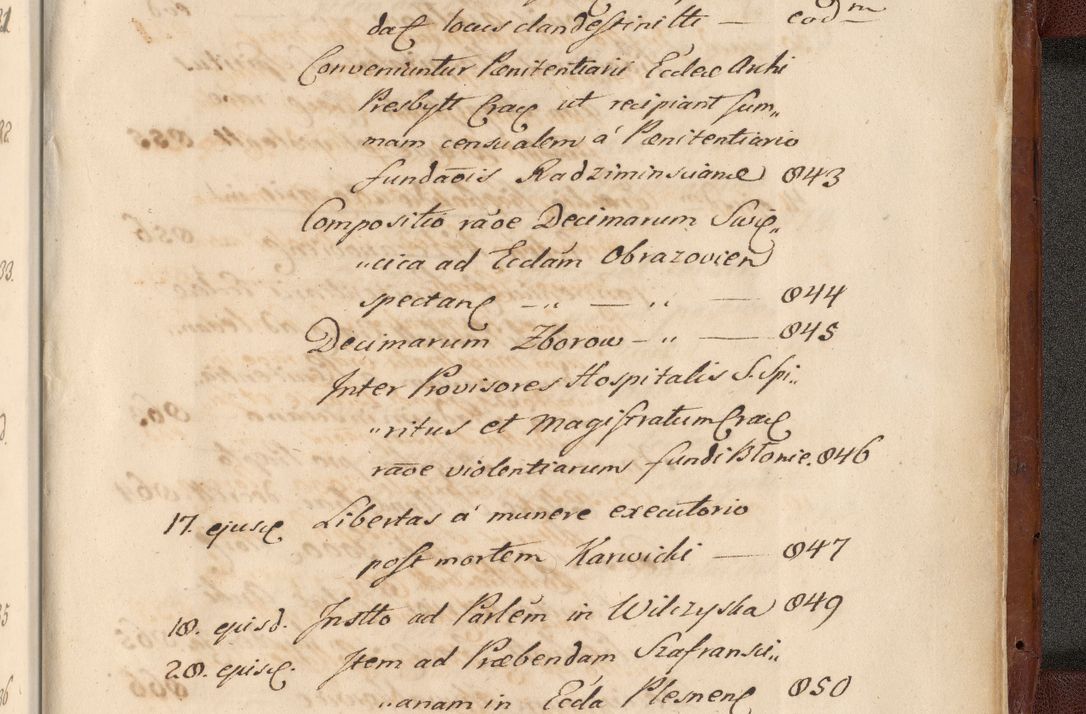 locus clandestinitt — eod m
Conveniuntur Pœnitentiarii Ecclae Archi
Presbytt Crac ut recipiant sum„
mam censualem á Pœnitentiario
fundaōis Radziminsciane 843
Compositio rāōe Decimarum Swię„
„cica ad Eccląm Obrazovien
spectanę — „ — „ — 844
Decimarum Zborow — „ — 845
Inter Provisores Hospitalis S. Spi„
„ritus et Magistratum Crac
rāōe violentiarum fundi Błonie. 846
17. ejusd. Libertas á munere executorio
post mortem Karwicki — 847
18. ejusd. Instto ad Parlem in Wilczyska 849
28. ejusd. Item ad Præbendam Szafransci„
„anam in Eccla Plesnenę 850